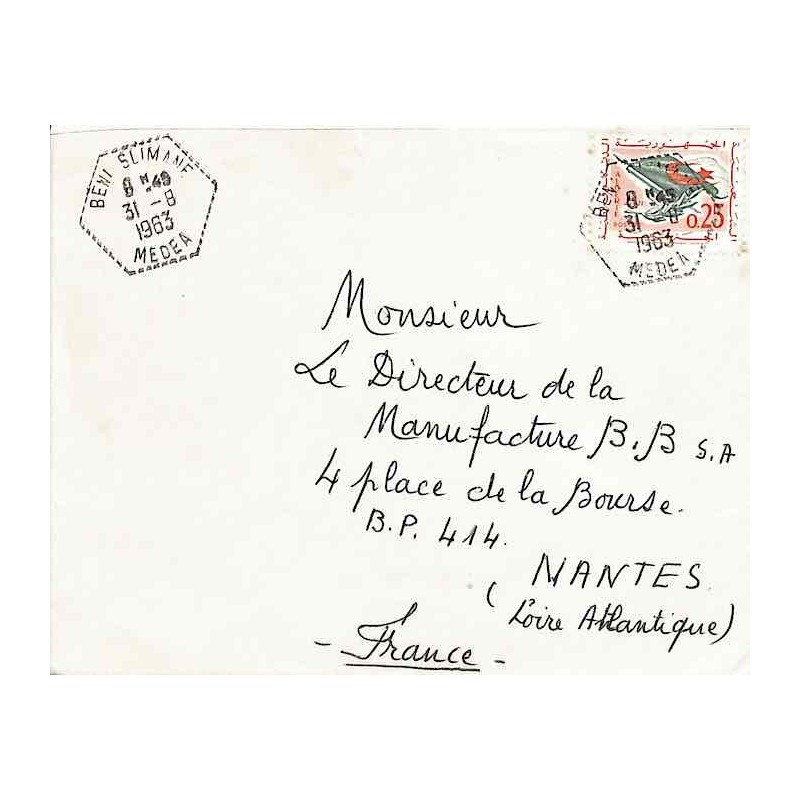 BENI SLIMANE
8 H 49
31 - 8
1963
MEDEA
الجمهورية
0.25
BENI
8 H 49
31 - 8
1963
MEDEA
Monsieur
Le Directeur de la
Manufacture B.B S.A
4 place de la Bourse.
B.P. 414.
NANTES.
(Loire Atlantique)
- France -